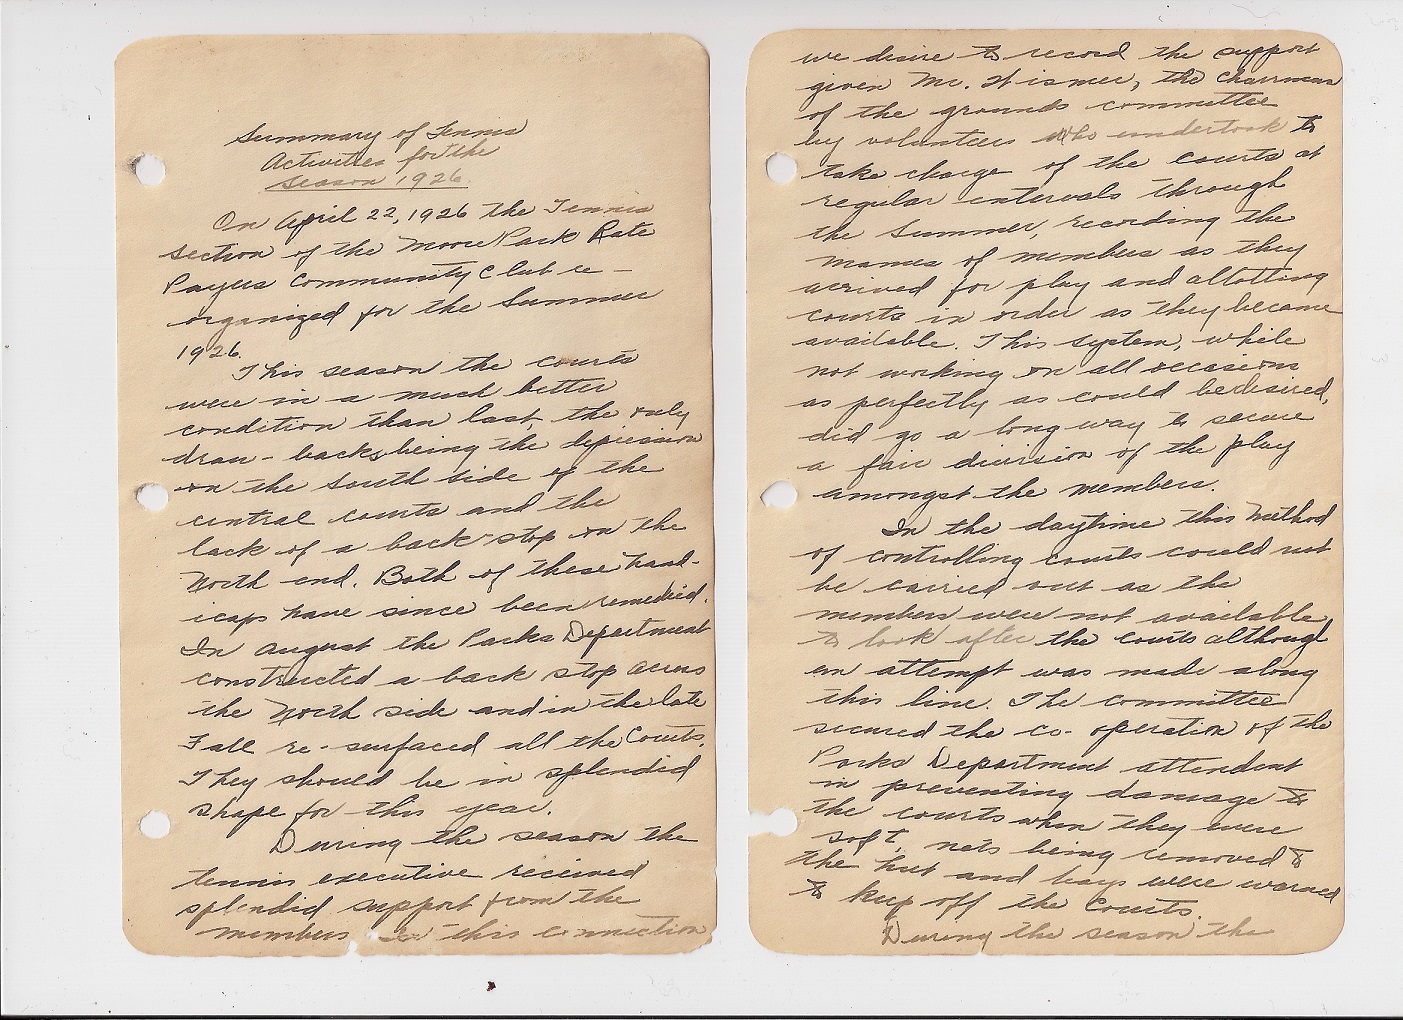 Summary of Tennis
Activities for the
Season 1926.
On April 22, 1926 the Tennis
section of the Moore Park Rate
Payers Community Club re-
organized for the Summer
1926.
This season the courts
were in a much better
condition than last, the only
draw-backs being the depression
on the South side of the
central courts and the
lack of a back-stop on the
North end. Both of these hand-
icaps have since been remedied.
In August the Parks Department
constructed a back stop across
the North side and in the late
Fall re-surfaced all the Courts.
They should be in splendid
shape for this year.
During the season the
tennis executive received
splendid support from the
members. In this connection
we desire to record the support
given Mr. Wismer, the Chairman
of the grounds committee
by volunteers who undertook to
take charge of the courts at
regular intervals through
the Summer, recording the
names of members as they
arrived for play and allotting
courts in order as they became
available. This system, while
not working on all occasions
as perfectly as could be desired,
did go a long way to secure
a fair division of the play
amongst the members.
In the daytime this method
of controlling courts could not
be carried out as the
members were not available
to look after the courts although
an attempt was made along
this line. The committee
secured the co-operation of the
Parks Department attendent
in preventing damage to
the courts when they were
soft, nets being removed to
the hut and boys were warned
to keep off the Courts.
During the season the